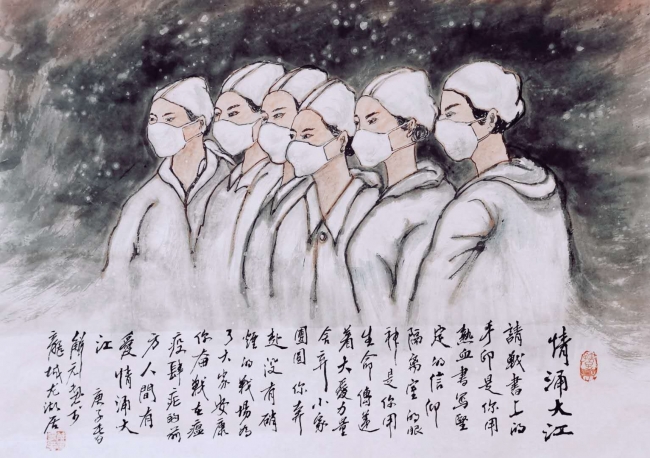 情涌大江
請戰書上的
手印是你用
熱血書寫堅
定的信仰
隔离室的眼
神是你用
生命傳遞
着大爱力量
舍弃小家
團圓 你奔
赴没有硝
煙的戰場为
了大家安康
你奋戰在瘟
疫肆疟的前
方人間有
愛情涌大
江 庚子春
解元
龍城 湖居